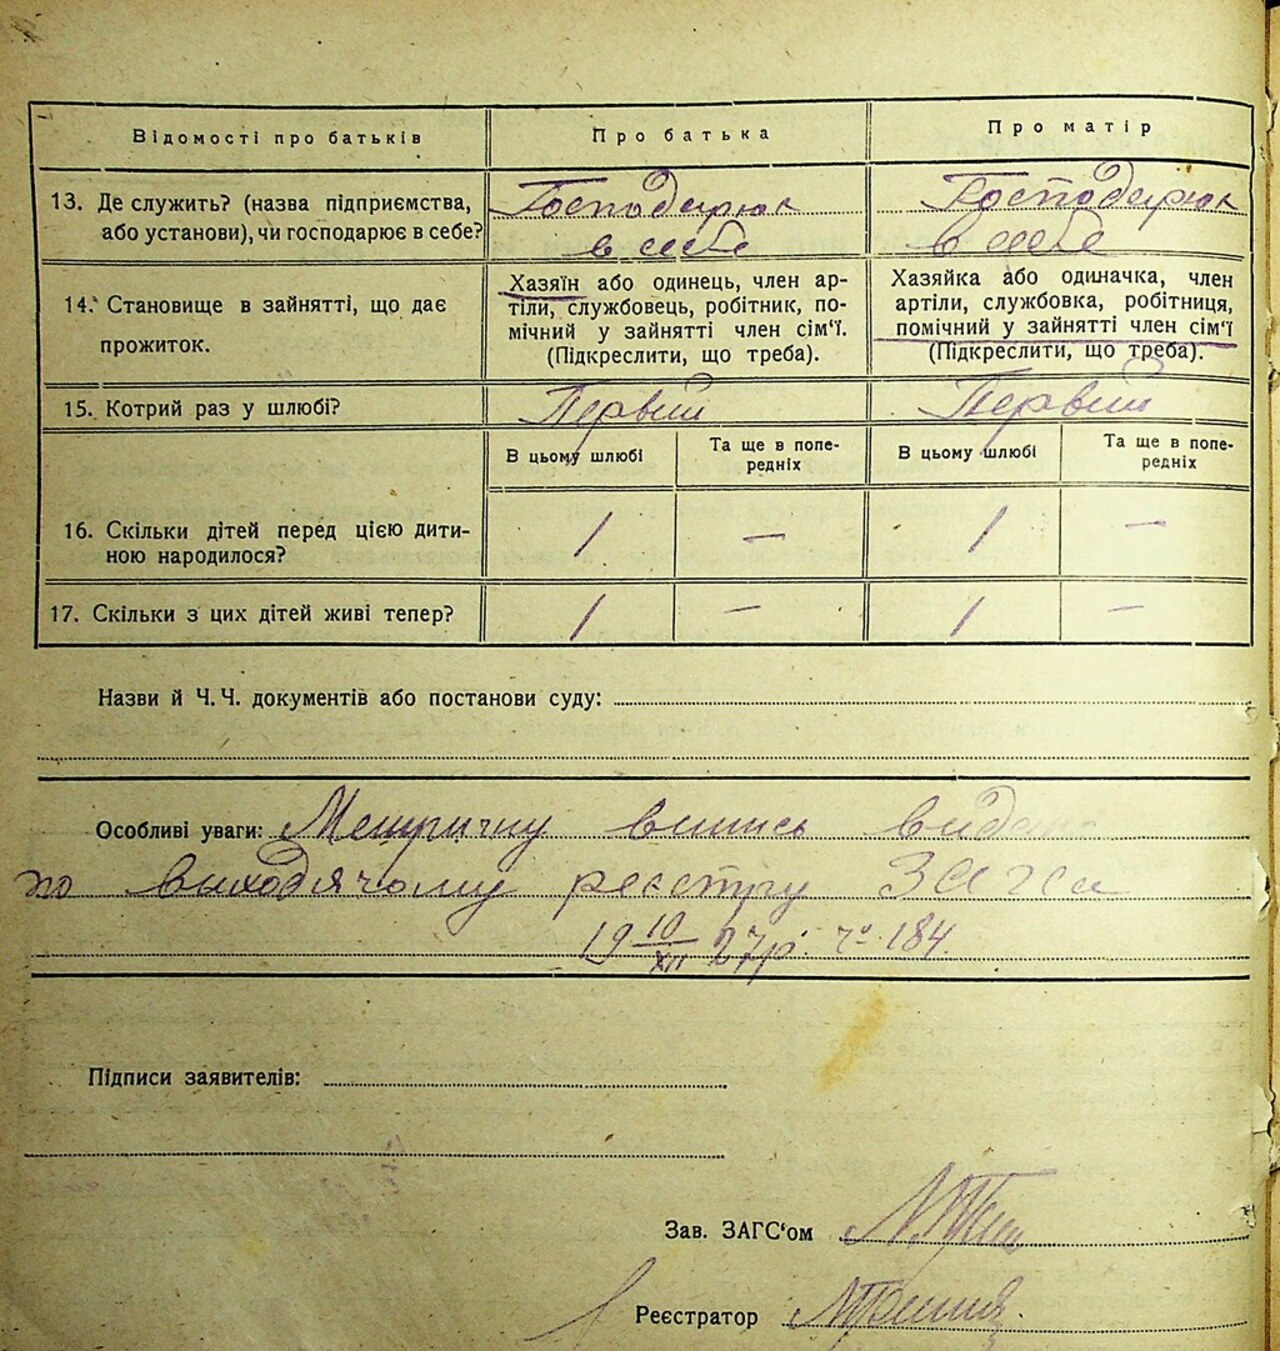 Відомості про батьків
Про батька
Про матір
13. Де служить? (назва підприємства,
або установи), чи господарює в себе?
Господарює
в себе
Господарює
в себе
14. Становище в зайнятті, що дає
прожиток.
Хазяїн або одинець, член ар-
тіли, службовець, робітник, по-
мічний у зайнятті член сім'ї.
(Підкреслити, що треба).
Хазяйка або одиначка, член
артіли, службовка, робітниця,
помічний у зайнятті член сім'ї
(Підкреслити, що треба).
15. Котрий раз у шлюбі?
Первий
Первий
В цьому шлюбі
Та ще в попе-
редніх
В цьому шлюбі
Та ще в попе-
редніх
16. Скільки дітей перед цією дити-
ною народилося?
1 — 1 —
17. Скільки з цих дітей живі тепер?
1 — 1 —
Назви й Ч. Ч. документів або постанови суду:
Особливі уваги: Метричну випись видано
по виходячому реєстру Загса
19 10/XII 27р. чо 184.
Підписи заявителів:
Зав. ЗАГС'ом
Реєстратор